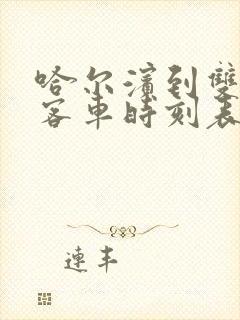 哈尔濱到雙
客車時刻表
連丰